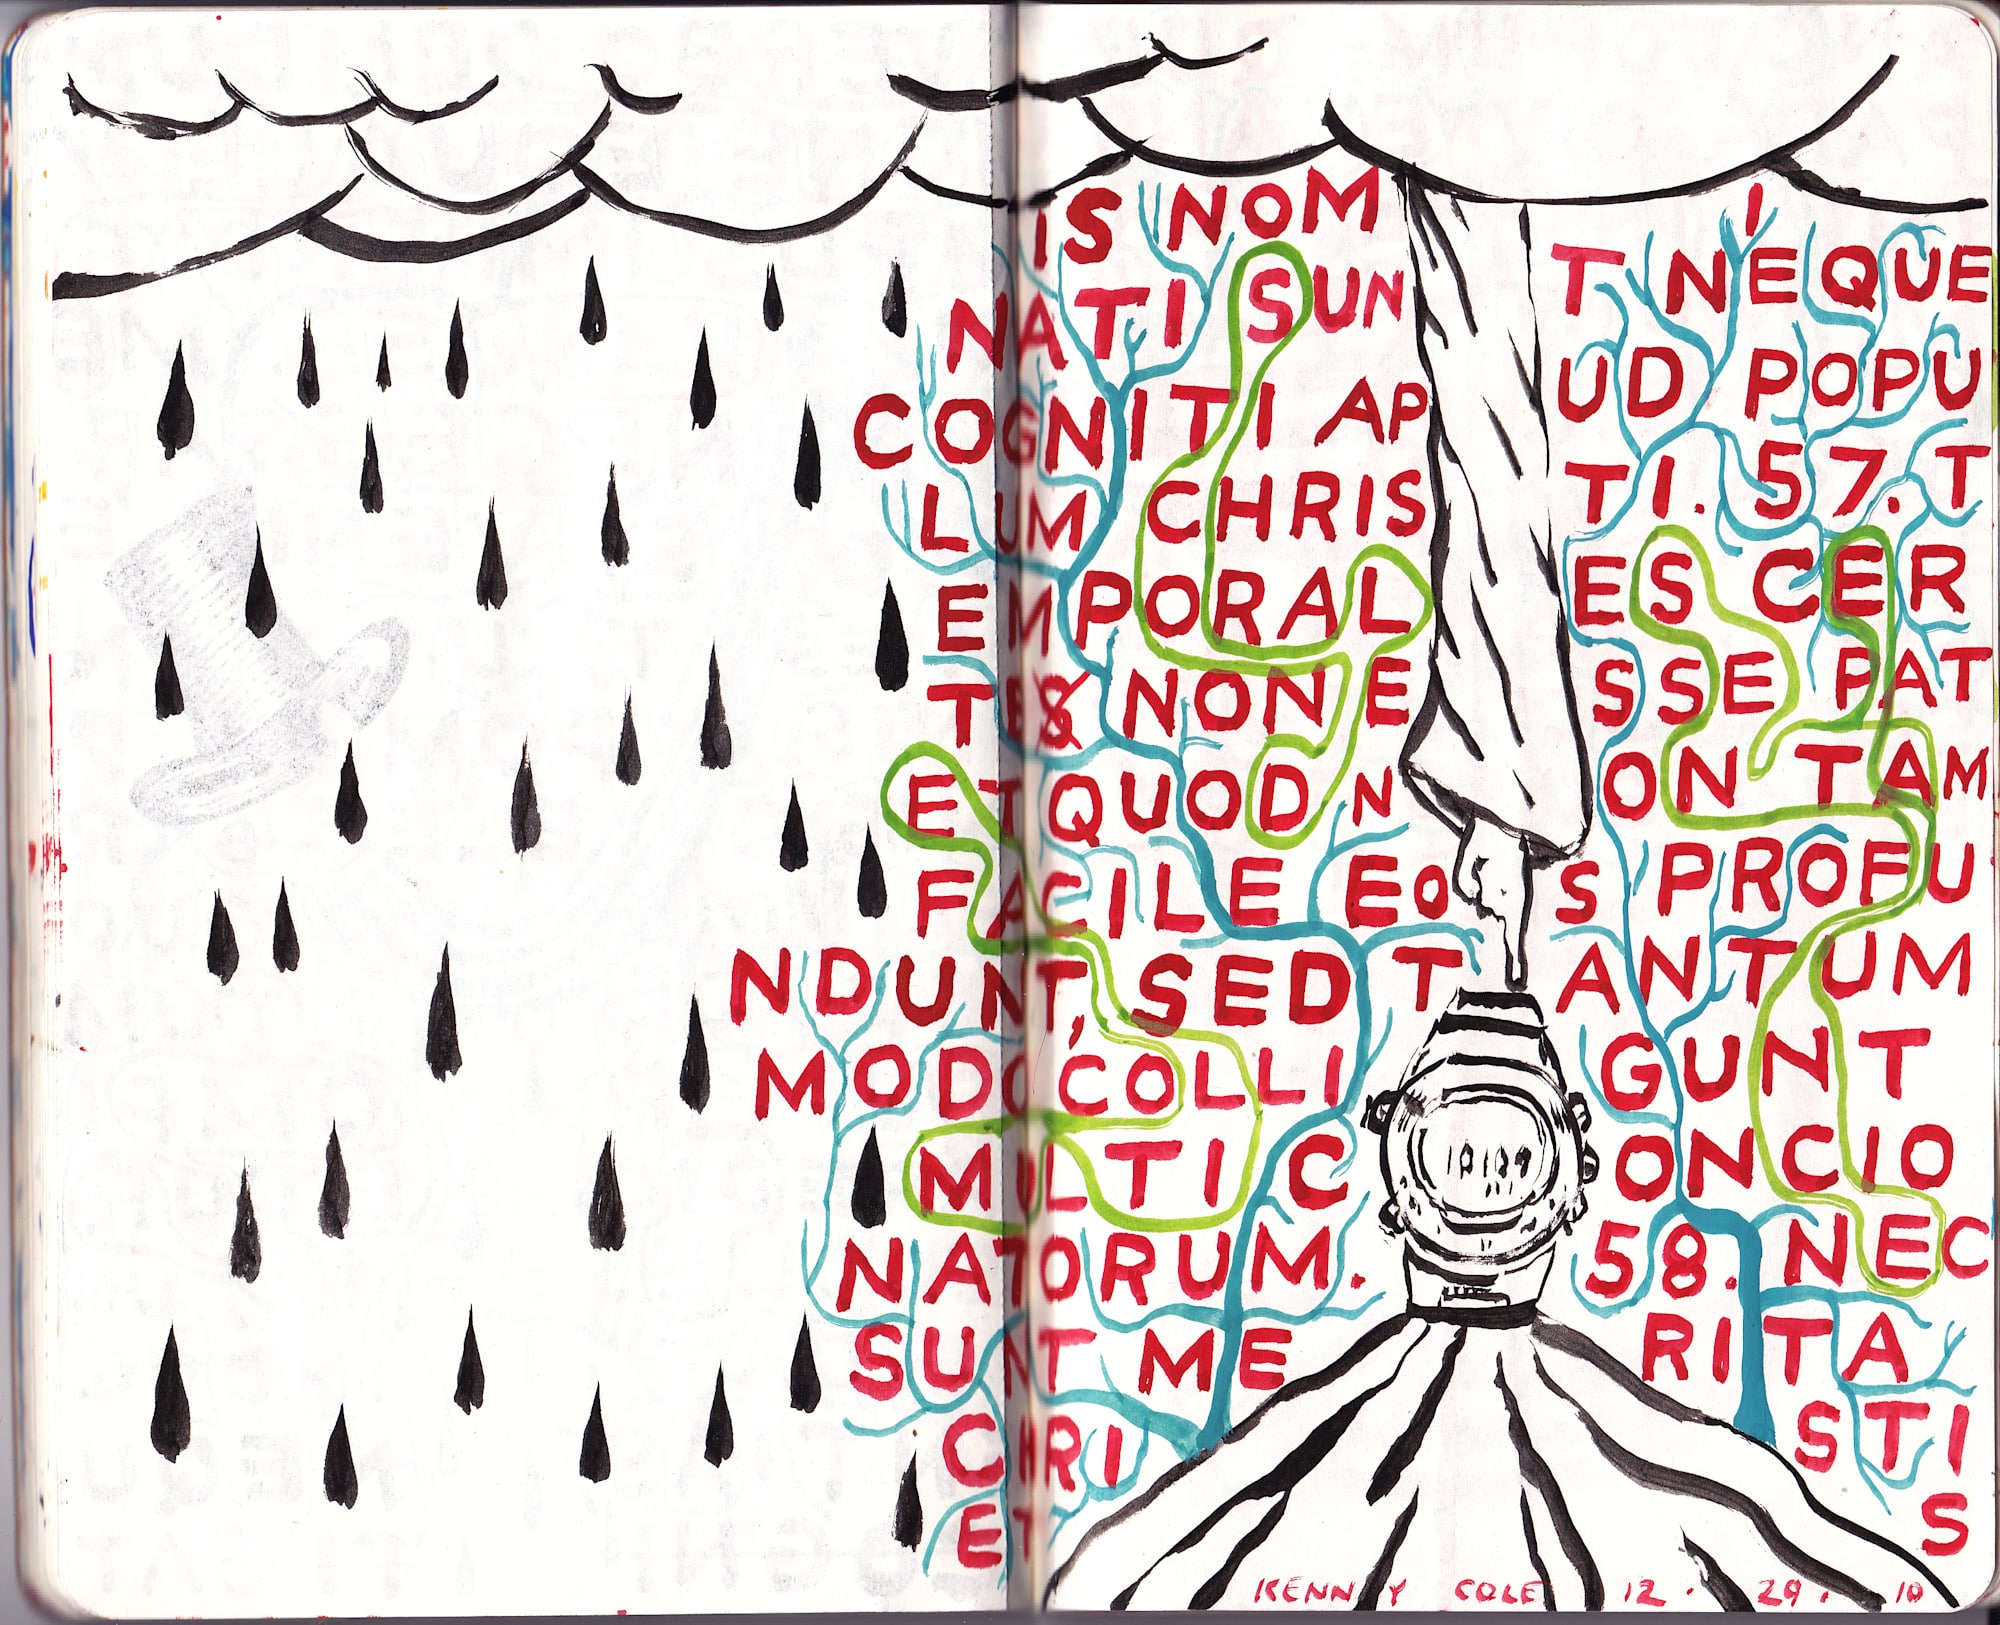 IS NOM I
NATI SUN T NEQUE
COGNITI AP UD POPU
LUM CHRIS TI. 57. T
EMPORAL ES CER
TES NON E SSE PAT
ET QUOD N ON TAM
FACILE EO S PROFU
NDUNT, SED T ANTUM
MODO COLLI GUNT
MULTI C ONCIO
NATORUM. 58. NEC
SUNT ME RITA
CHRI STI
ET S
10:09
KENNY COLE 12. 29. 10